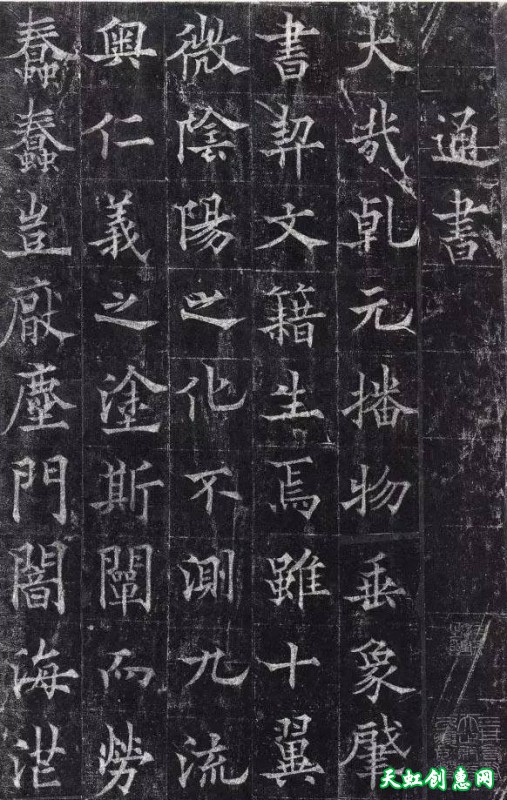 通書
大哉乹元播物垂象肈
書契文籍生焉雖十翼
微陰陽之化不測九流
奥仁義之塗斯闡而勞
蠢蠢豈厭塵門闇海
天虹创惠网